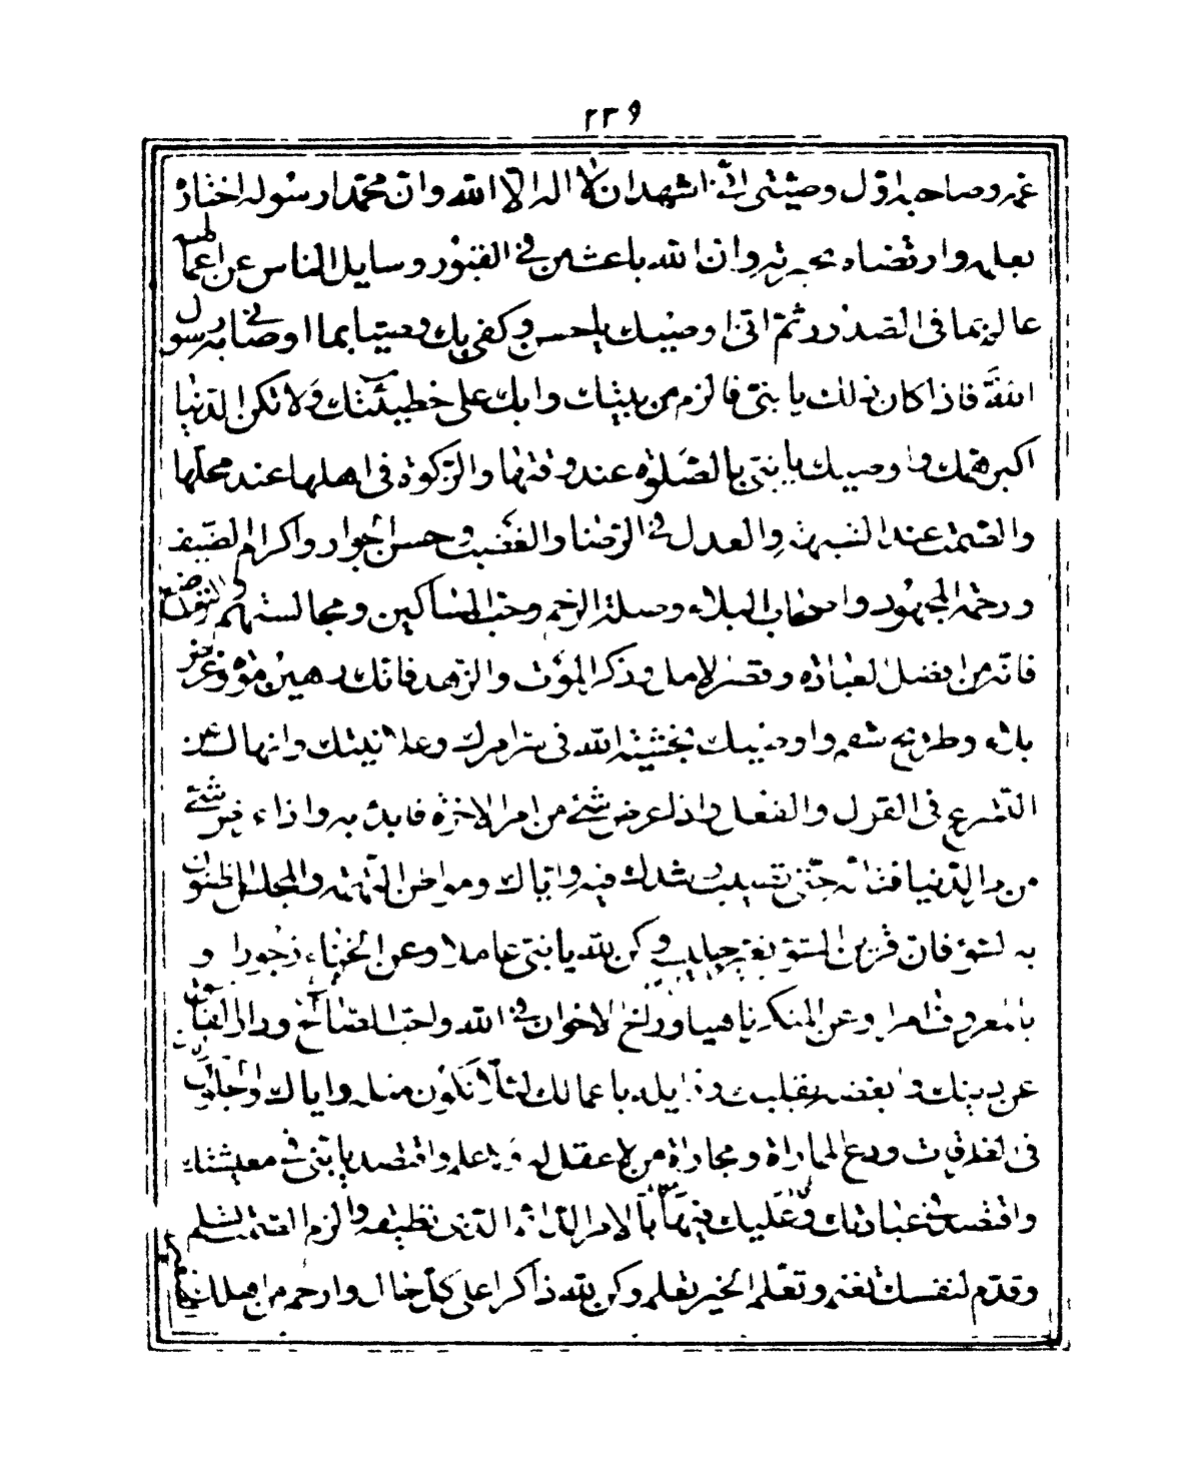 ٢٣٩
عمه وصاحبه اول وصيتى انى اشهد ان لا اله الا الله وان محمدا رسوله اختاره
بعلمه وارتضاه بخيرته وان الله باعث من فى القبور وسايل الناس عن اعمالهم
عالم بما فى الصدور ثم انى اوصيك يا حسن وكفى بك وصيا بما اوصانى به رسول
الله فاذا كان ذلك يا بنى فالزم من بيتك وابك على خطيئتك ولا تكن الدنيا
اكبر همك واوصيك يا بنى بالصلوة عند وقتها والزكوة فى اهلها عند محلها
والصمت عند الشبهة والعدل فى الرضا والغضب وحسن الجوار واكرام الضيف
ورحمة المجهود واصحاب البلاء وصلة الرحم وحب المساكين ومجالستهم والتواضع
فانه من افضل العبادة وقصر الامل وذكر الموت والزهد فانك رهين موت وغرض
بلاء وطريح سقم واوصيك بخشية الله فى سر امرك وعلانيتك وانهاك عن
التسرع فى القول والفعل واذا عرض شئ من امر الاخرة فابدء به واذا عرض شئ
من امر الدنيا فتانه حتى تصيب رشدك فيه واياك ومواطن التهمة والمجلس المظنون
به السوء فان قرين السوء يغير جليسه وكن لله يا بنى عاملا وعن الخناء زجورا و
بالمعروف امرا وعن المنكر ناهيا وواخ الاخوان فى الله واحب الصالح ودار الفاسق
عن دينك وابغضه بقلبك وزايله باعمالك لئلا تكون مثله واياك والجلوس
فى الطرقات ودع المماراة ومجاراة من لا عقل له ولا علم واقتصد يا بنى فى معيشتك
واقتصد فى عبادتك وعليك فيها بالامر الدائم الذى تطيقه والزم الصمت تسلم
وقدم لنفسك تغنم وتعلم الخير تعلم وكن لله ذاكرا على كل حال وارحم من اهلك